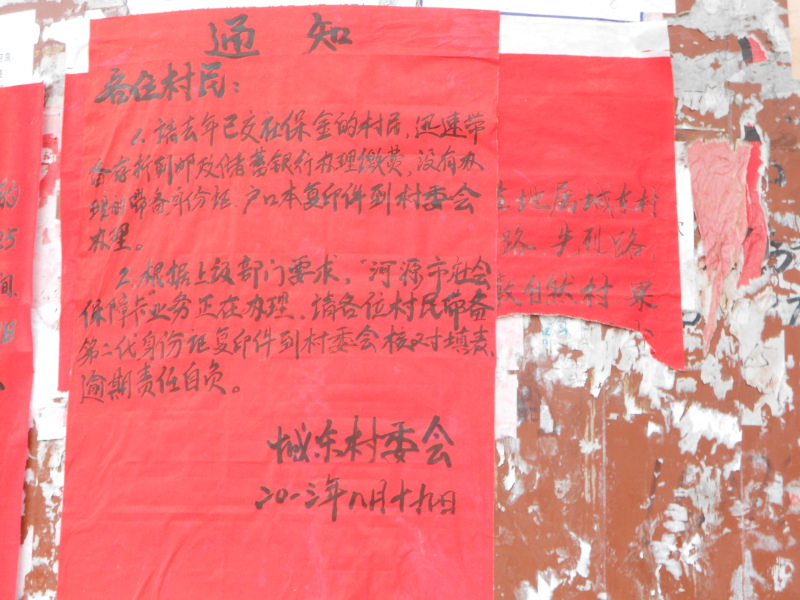 通知
各位村民：
1、请去年已交社保金的村民，迅速带
备存折到邮政储蓄银行办理缴费，没有办
理的带备身份证、户口本复印件到村委会
办理。
2、根据上级部门要求，“河源市社会
保障卡业务正在办理、请各位村民带备
第二代身份证复印件到村委会核对填表，
逾期责任自负。
城东村委会
二0一三年八月十九日
地属城东村
路、先烈路，
自然村
约
25
间